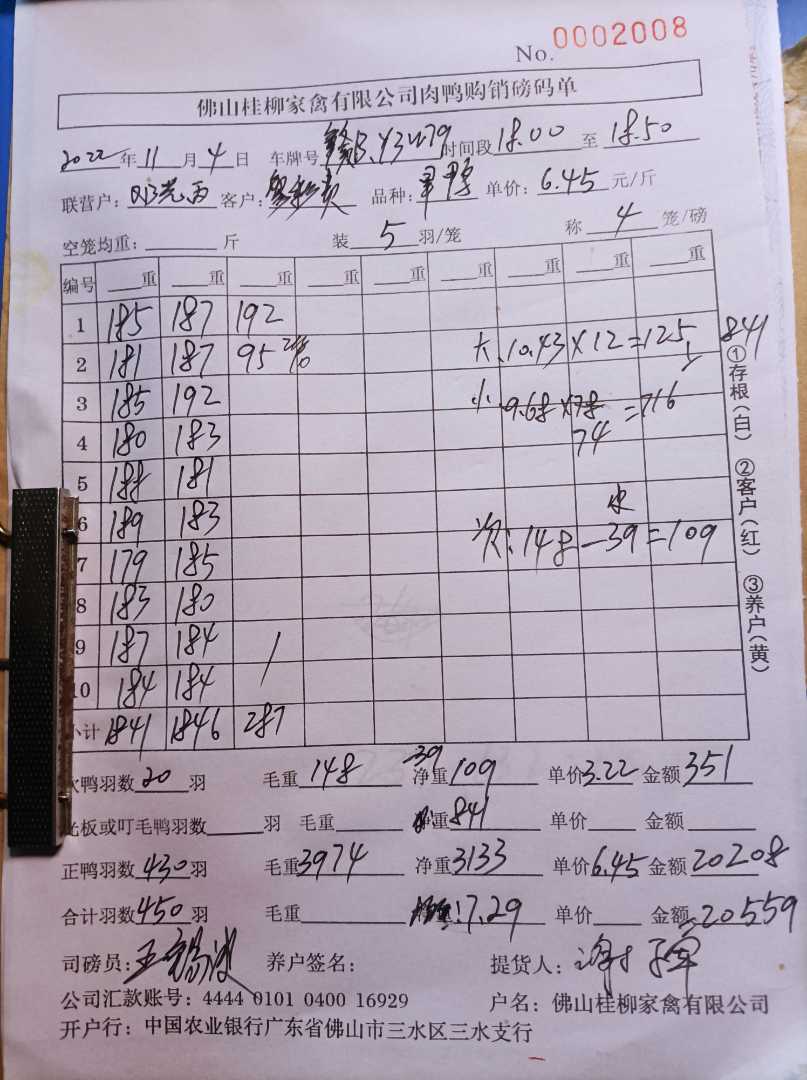 No. 0002008
佛山桂柳家禽有限公司肉鸭购销磅码单
2022年11月4日 车牌号 时间段18.00至18.50
联营户: 客户: 品种: 单价:6.45元/斤
空笼均重:____斤 装5羽/笼 称4笼/磅
编号 ___重 ___重 ___重 ___重 ___重 ___重 ___重 ___重 ___重
1 185 187 192
2 181 187 95 大 10.43×12=125 841
3 185 192 小 9.68×78 74=716
4 180 183
5 188 181
6 189 183 水
7 179 185 次:148-39=109
8 183 180
9 187 184
10 184 184
小计 1841 1846 287
①存根(白) ②客户(红) ③养户(黄)
次鸭羽数20羽 毛重148 -39 净重109 单价3.22 金额351
光板或叮毛鸭羽数____羽 毛重____ 净重841 单价____ 金额____
正鸭羽数430羽 毛重3974 净重3133 单价6.45 金额20208
合计羽数450羽 毛重____ 7.29 单价____ 金额20559
司磅员: 养户签名: 提货人:
公司汇款账号:4444 0101 0400 16929 户名:佛山桂柳家禽有限公司
开户行:中国农业银行广东省佛山市三水区三水支行